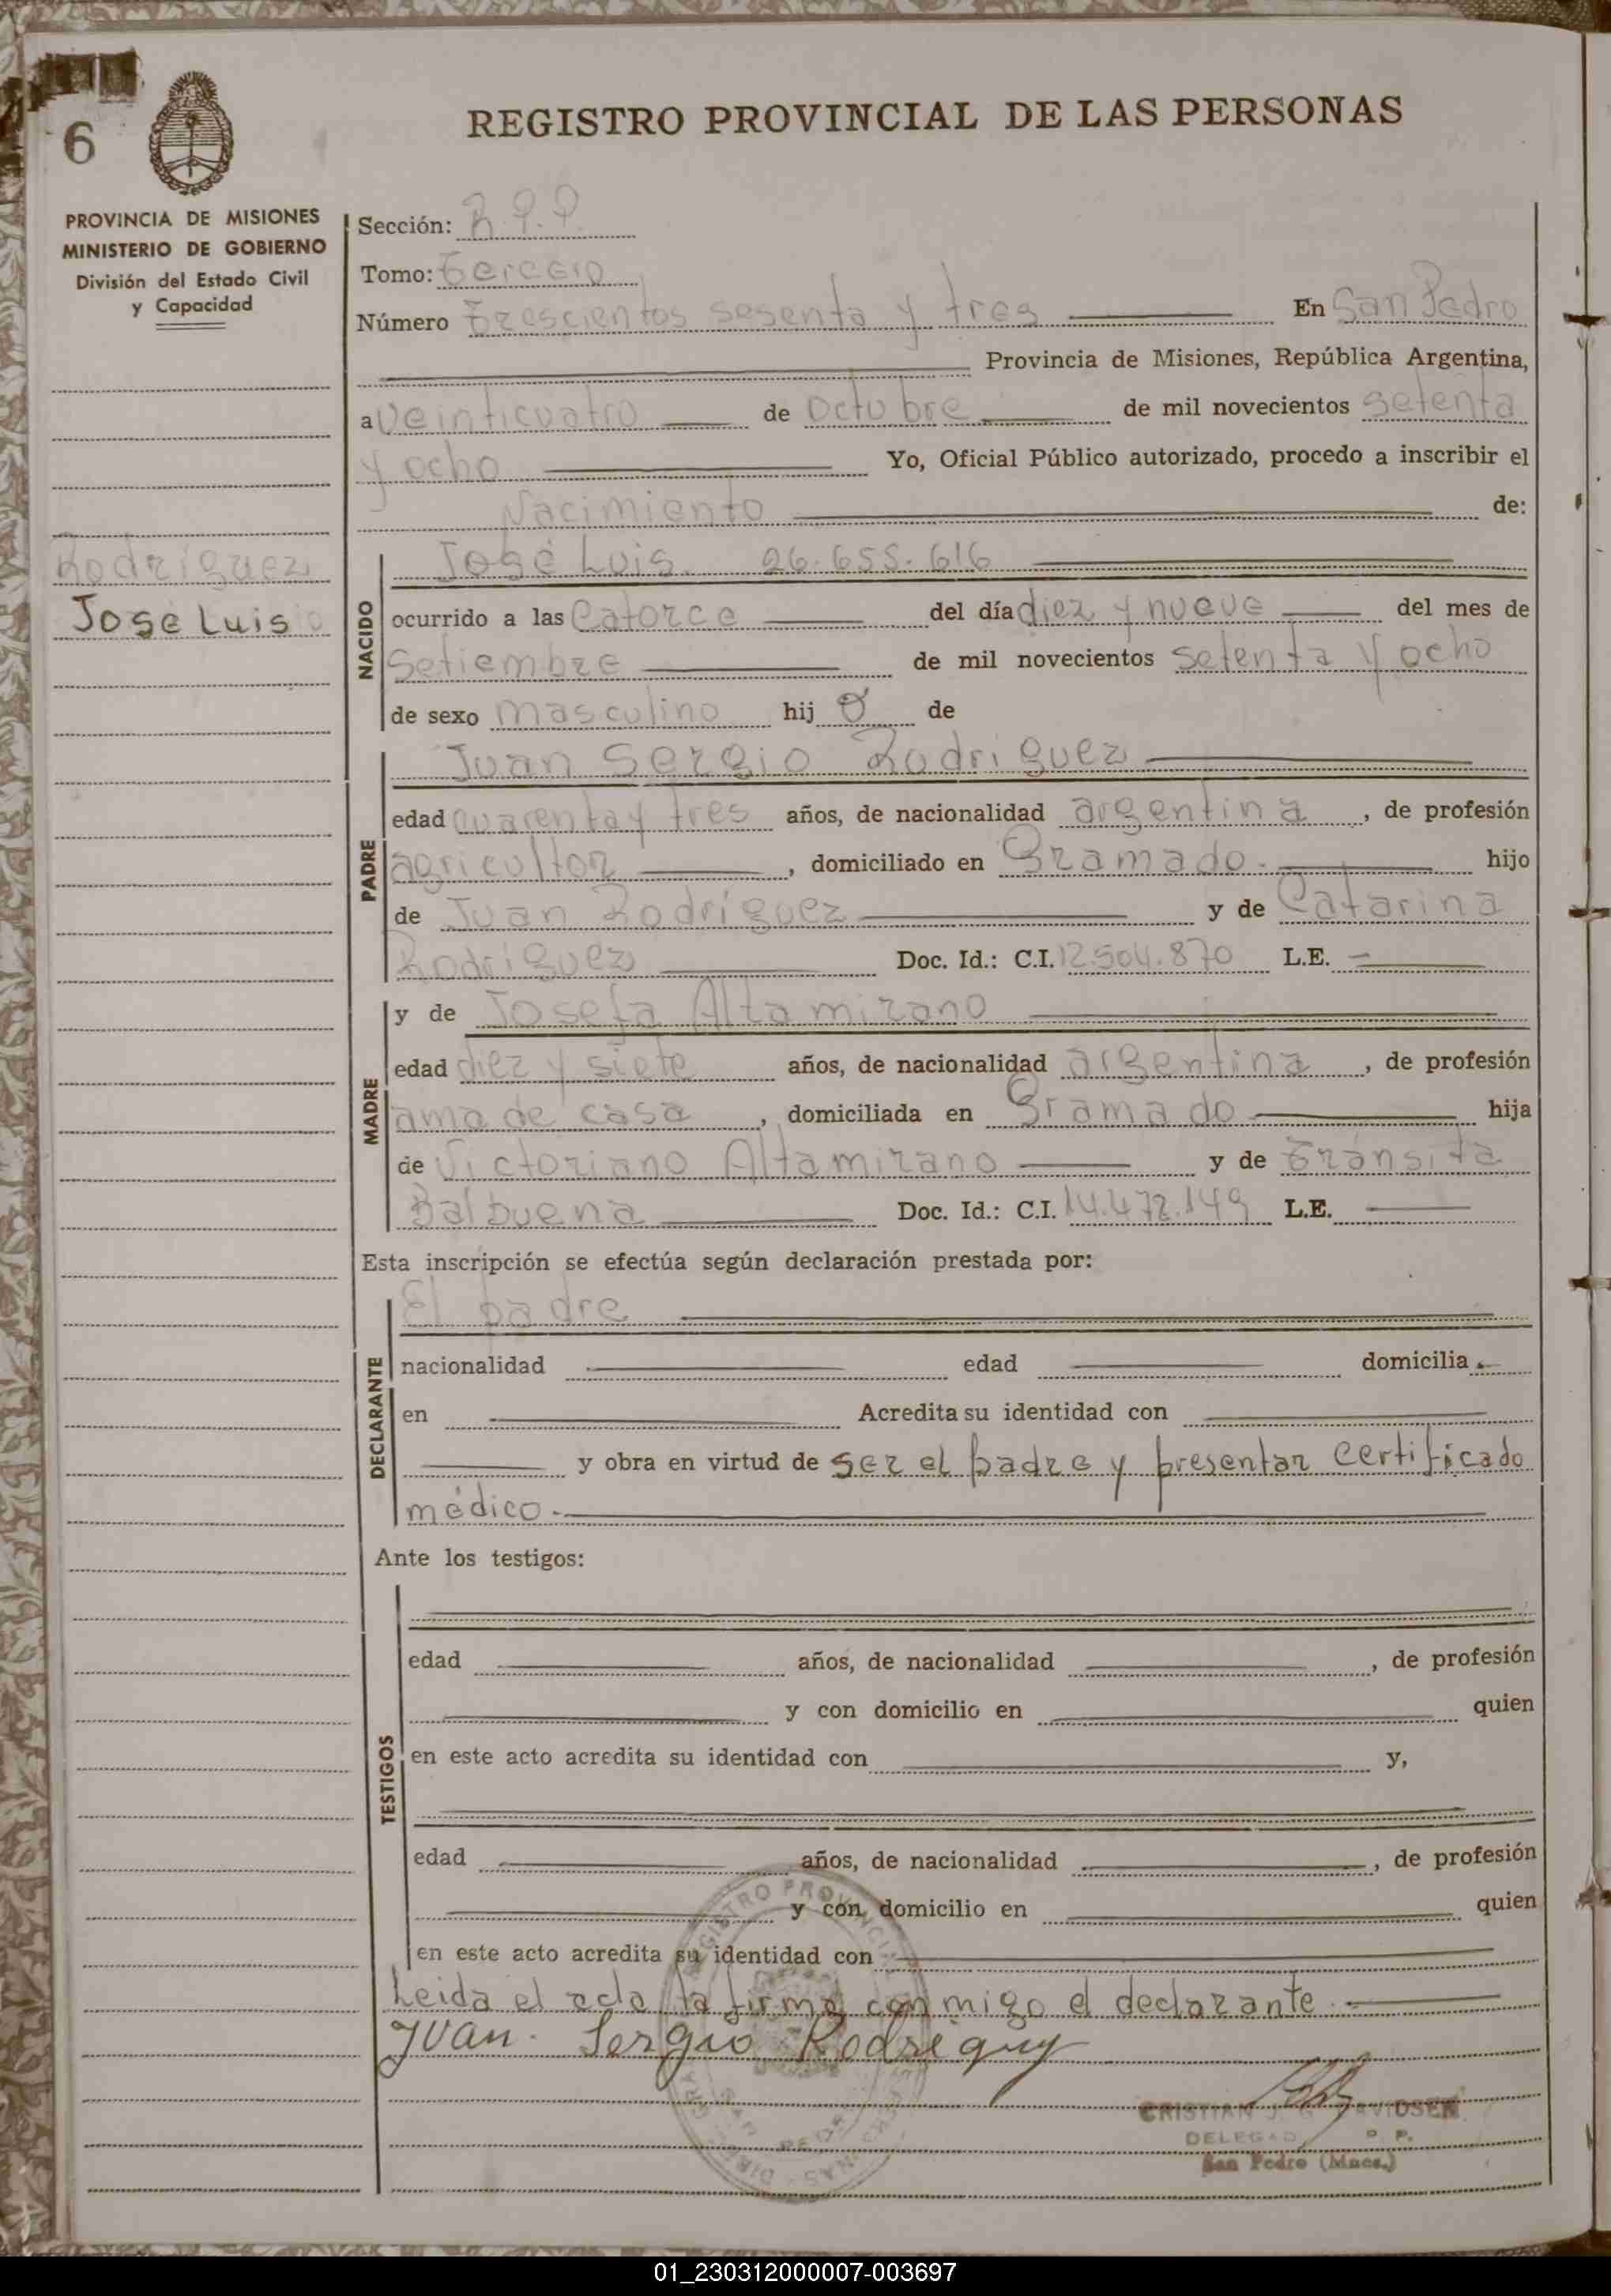 6
REGISTRO PROVINCIAL DE LAS PERSONAS
PROVINCIA DE MISIONES
MINISTERIO DE GOBIERNO
División del Estado Civil
y Capacidad
Sección: R.P.P.
Tomo: Tercero
Número Trescientos sesenta y tres En San Pedro
Provincia de Misiones, República Argentina,
a veinticuatro de Octubre de mil novecientos setenta
y ocho Yo, Oficial Público autorizado, procedo a inscribir el
Nacimiento de:
Rodríguez
José Luis
NACIDO
José Luis. 26.655.616
ocurrido a las Catorce del día diez y nueve del mes de
Setiembre de mil novecientos setenta y ocho
de sexo masculino hij o de
PADRE
Juan Sergio Rodriguez
edad cuarenta y tres años, de nacionalidad argentina, de profesión
agricultor, domiciliado en Gramado. hijo
de Juan Rodríguez y de Catarina
Rodriguez Doc. Id.: C.I. 12.504.870 L.E. —
MADRE
y de Josefa Altamirano
edad diez y siete años, de nacionalidad argentina, de profesión
ama de casa, domiciliada en Gramado hija
de Victoriano Altamirano y de Tránsita
Balbuena Doc. Id.: C.I. 14.472.149 L.E.
Esta inscripción se efectúa según declaración prestada por:
DECLARANTE
El padre
nacionalidad edad domicilia
en Acredita su identidad con
y obra en virtud de ser el padre y presentar certificado
médico.
Ante los testigos:
TESTIGOS
edad años, de nacionalidad , de profesión
y con domicilio en quien
en este acto acredita su identidad con y,
edad años, de nacionalidad , de profesión
y con domicilio en quien
en este acto acredita su identidad con
Leida el acta la firma conmigo el declarante.
Juan Sergio Rodriguy
CRISTIAN J.
DELEGAD R. P.
San Pedro (Mnes.)
01_230312000007-003697